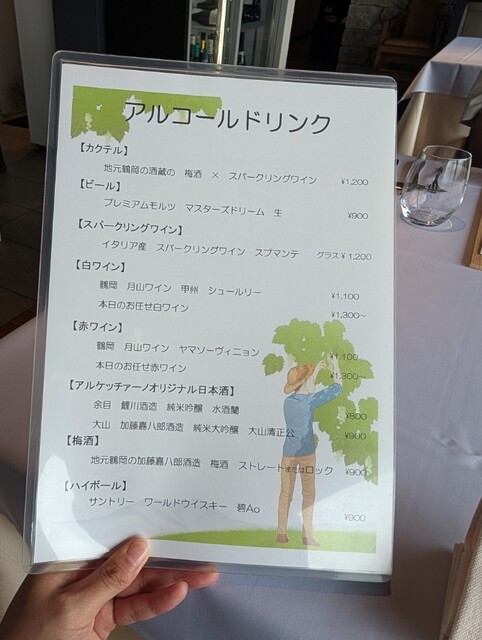 アルコールドリンク
【カクテル】
地元鶴岡の酒蔵の 梅酒 × スパークリングワイン ¥1,200
【ビール】
プレミアムモルツ マスターズドリーム 生 ¥900
【スパークリングワイン】
イタリア産 スパークリングワイン スプマンテ グラス¥1,200
【白ワイン】
鶴岡 月山ワイン 甲州 シュールリー ¥1,100
本日のお任せ白ワイン ¥1,300～
【赤ワイン】
鶴岡 月山ワイン ヤマソーヴィニョン ¥1,100
本日のお任せ赤ワイン ¥1,300～
【アルケッチァーノオリジナル日本酒】
余目 鯉川酒造 純米吟醸 水酒蘭 ¥800
大山 加藤嘉八郎酒造 純米大吟醸 大山清正公 ¥900
【梅酒】
地元鶴岡の加藤嘉八郎酒造 梅酒 ストレートまたはロック ¥900
【ハイボール】
サントリー ワールドウイスキー 碧Ao ¥900